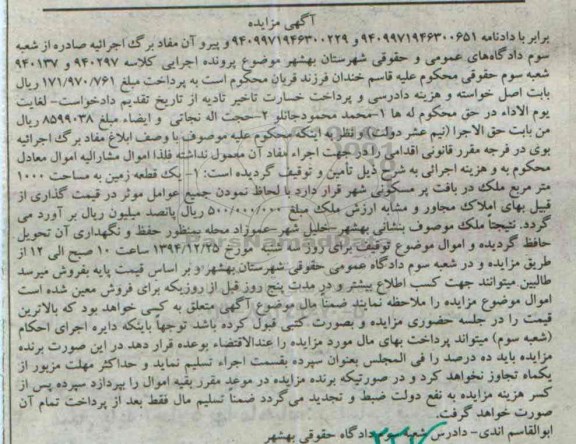 آگهی مزایده
برابر با دادنامه ۹۴۰۹۹۷۱۹۴۶۳۰۰۶۵۱ و ۹۴۰۹۹۷۱۹۴۶۳۰۰۲۲۹ و پیرو آن مفاد برگ اجرائیه صادره از شعبه
سوم دادگاههای عمومی و حقوقی شهرستان بهشهر موضوع پرونده اجرایی کلاسه ۹۴۰۲۹۷ و ۹۴۰۱۳۷
شعبه سوم حقوقی محکوم علیه قاسم خندان فرزند قربان محکوم است به پرداخت مبلغ ۱۷۱/۹۷۰/۷۶۱ ریال
بابت اصل خواسته و هزینه دادرسی و پرداخت خسارت تاخیر تادیه از تاریخ تقدیم دادخواست- لغایت
یوم الاداء در حق محکوم له ها ۱-محمد محمودجانلو ۲-حجت اله نجاتی و ایضاء مبلغ ۸۵۹۹۰۳۸ ریال
من بابت حق الاجرا (نیم عشر دولت) و نظر به اینکه محکوم علیه موصوف با وصف ابلاغ مفاد برگ اجرائیه
بوی در فرجه مقرر قانونی اقدامی را در جهت اجراء مفاد آن معمول نداشته فلذا اموال مشارالیه اموال معادل
محکوم به و هزینه اجرائی به شرح ذیل تأمین و توقیف گردیده است: ۱- یک قطعه زمین به مساحت ۱۰۰۰
متر مربع ملک در بافت پر مسکونی شهر قرار دارد با لحاظ نمودن جمیع عوامل موثر در قیمت گذاری از
قبیل بهای املاک مجاور و مشابه ارزش ملک مبلغ ۵۰۰/۰۰۰/۰۰۰ ریال پانصد میلیون ریال بر آورد می
گردد. نتیجتاً ملک موصوف بنشانی بهشهر-خلیل شهر-عموزاد محله بمنظور حفظ و نگهداری آن تحویل
حافظ گردیده و اموال موضوع توقیف برای روز سه شنبه مورخ ۱۳۹۴/۱۲/۲۵ ساعت ۱۰ صبح الی ۱۲ از
طریق مزایده و در شعبه سوم دادگاه عمومی حقوقی شهرستان بهشهر و بر اساس قیمت پایه بفروش میرسد
طالبین میتوانند جهت کسب اطلاع بیشتر و در مدت پنج روز قبل از روزیکه برای فروش معین شده است
اموال موضوع مزایده را ملاحظه نمایند ضمناً مال موضوع آگهی متعلق به کسی خواهد بود که بالاترین
قیمت را در جلسه حضوری مزایده و بصورت کتبی قبول کرده باشد توجهاً باینکه دایره اجرای احکام
(شعبه سوم) میتواند پرداخت بهای مال مورد مزایده را عندالاقتضاء بوعده قرار دهد در این صورت برنده
مزایده باید ده درصد را فی المجلس بعنوان سپرده بقسمت اجراء تسلیم نماید و حداکثر مهلت مزبور از
یکماه تجاوز نخواهد کرد و در صورتیکه برنده مزایده در موعد مقرر بقیه اموال را بپردازد سپرده پس از
کسر هزینه مزایده به نفع دولت ضبط و تجدید می‌گردد ضمناً تسلیم مال فقط بعد از پرداخت تمام آن
صورت خواهد گرفت.
ابوالقاسم اندی- دادرس شعبه دادگاه حقوقی بهشهر